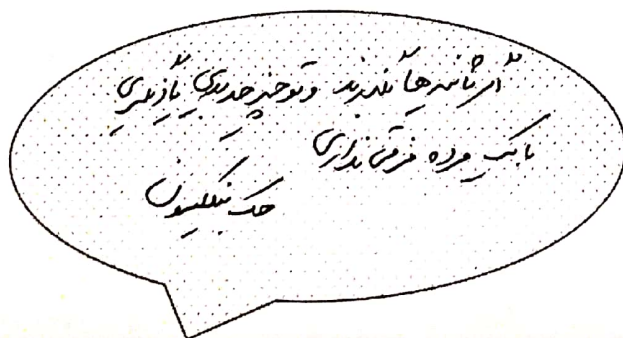 اگر ثانیه ها بگذرند و تو چیز جدیدی یاد نگیری
با یک مرده فرقی نداری
جک نیکلسون